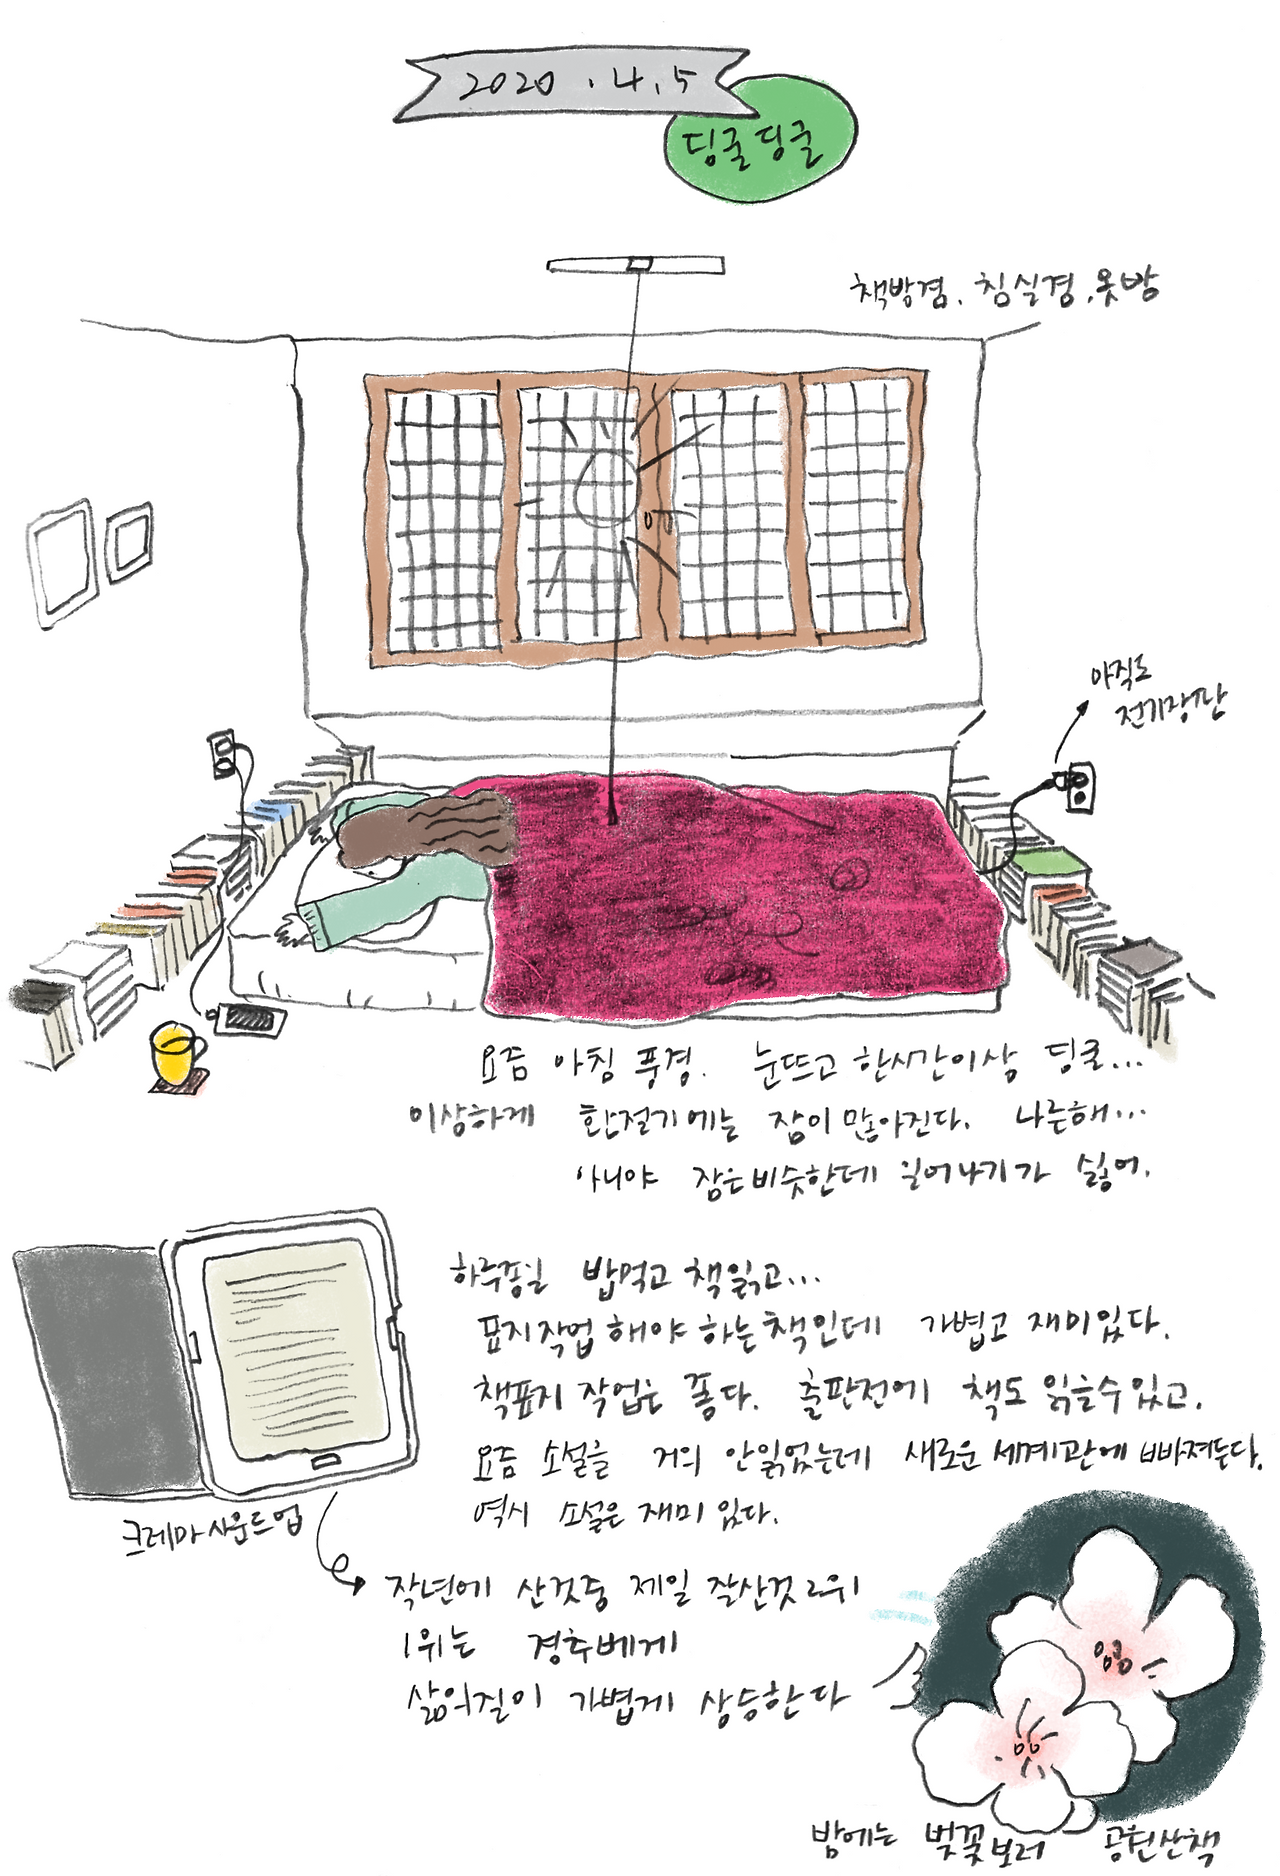 2020.4.5
딩굴딩굴
책방겸. 침실겸.옷방
아직도
전기장판
요즘 아침 풍경. 눈뜨고 한시간이상 딩굴...
이상하게 환절기에는 잠이 많아진다. 나른해...
아니야 잠은비슷한데 일어나기가 싫어.
하루종일 밥먹고 책읽고...
표지작업 해야 하는 책인데 가볍고 재미있다.
책표지 작업은 좋다. 출판전에 책도 읽을수있고.
요즘 소설을 거의 안읽었는데 새로운 세계관에 빠져든다.
역시 소설은 재미 있다.
크레마사운드업
작년에 산것중 제일 잘산것 2위
1위는 경추베게
삶의질이 가볍게 상승한다
밤에는 벚꽃보러 공원산책